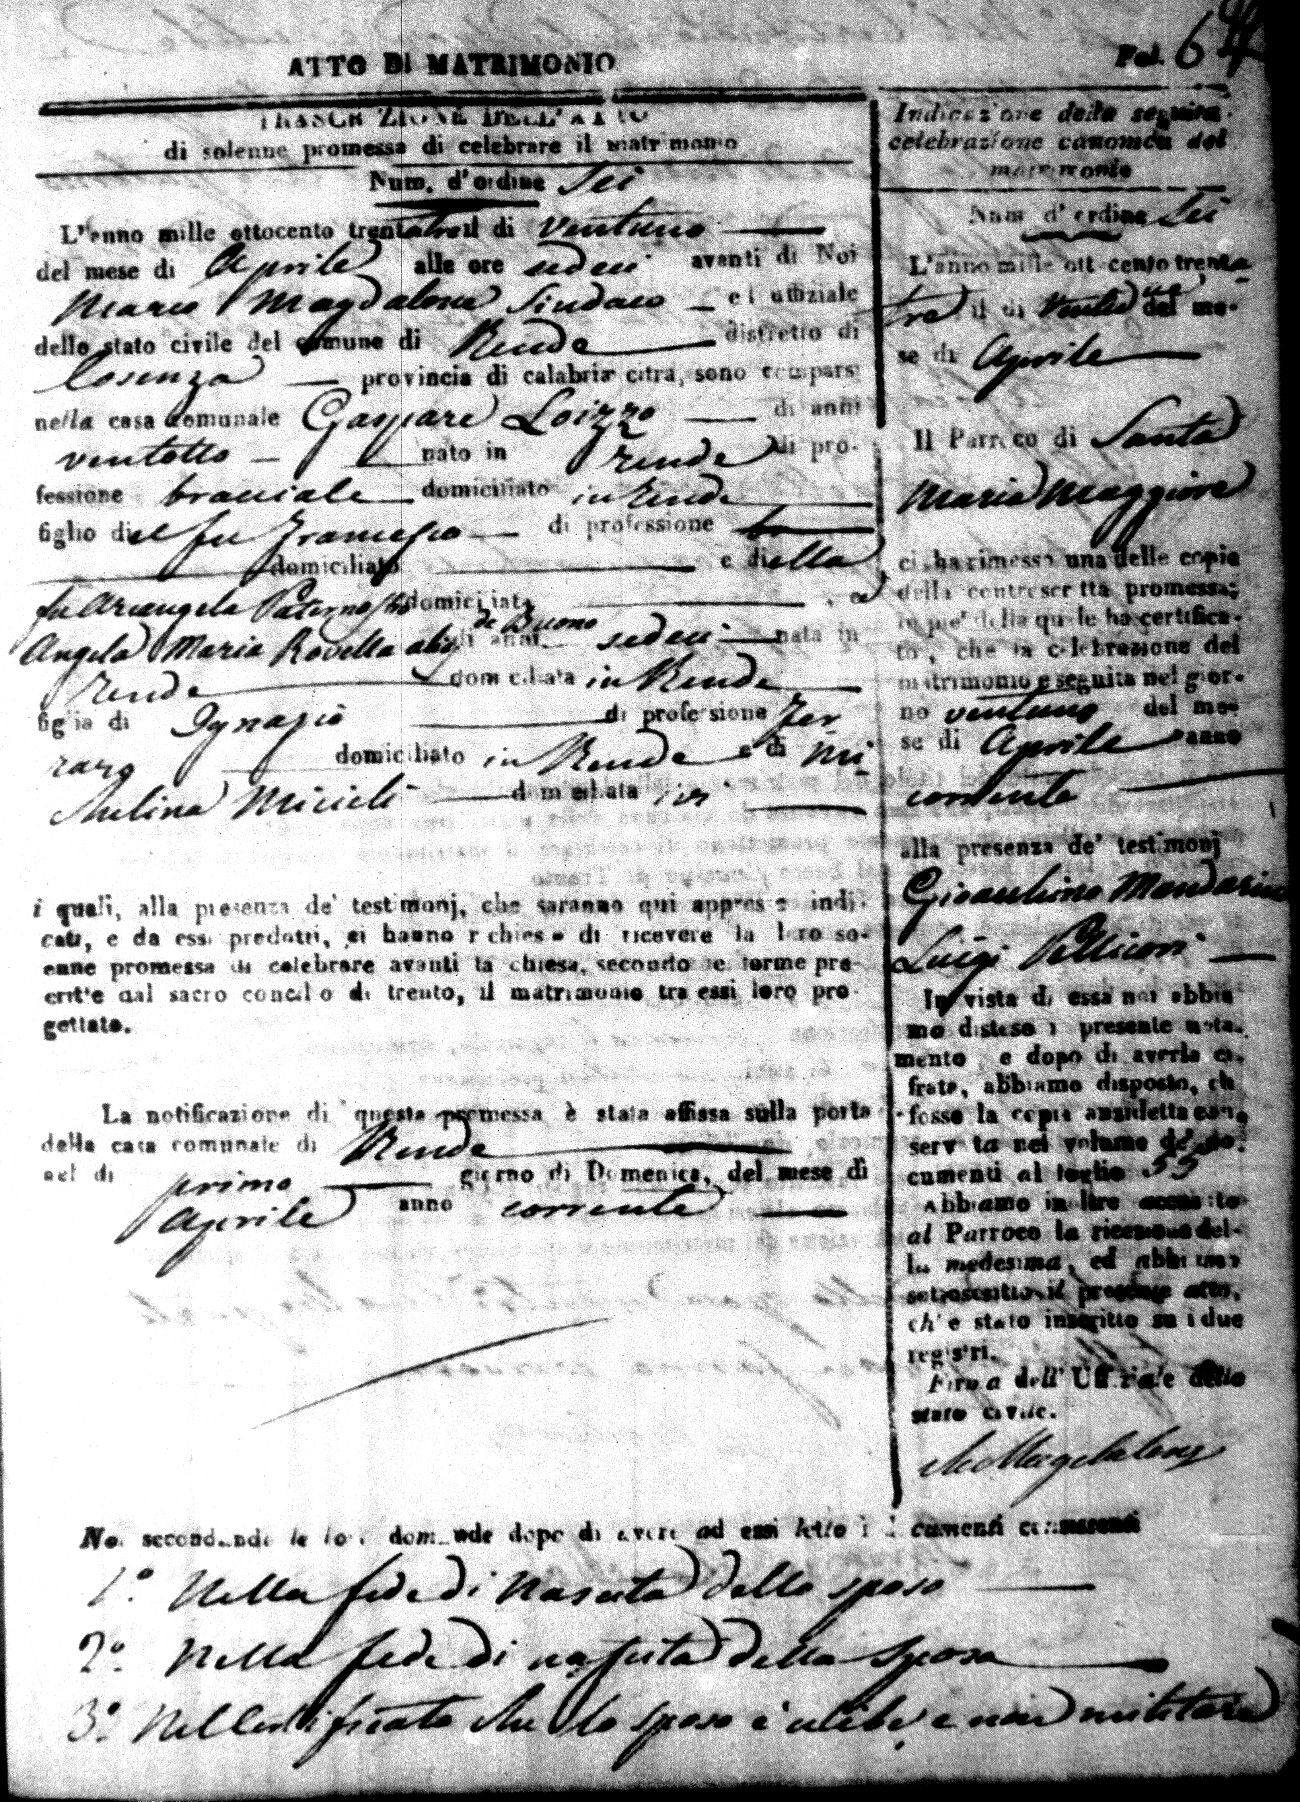 ATTO DI MATRIMONIO
Fol. 6
TRASCRIZIONE DELL'ATTO
di solenne promessa di celebrare il matrimonio
Num. d'ordine Sei
L'anno mille ottocento trentatre il di ventuno
del mese di Aprile alle ore sedeci avanti di Noi
Mario Magdalone Sindaco ed uffiziale
dello stato civile del comune di Rende distretto di
Cosenza provincia di calabria citra, sono comparsi
nella casa comunale Gaspare Loizzo di anni
ventotto nato in rende di pro-
fessione bracciale domiciliato in rende
figlio del fu Francesco di professione
domiciliato e della
fu Arcangela Paternostro domiciliata , e
Angela Maria Rovella alias de Buono di anni sedeci nata in
rende domiciliata in Rende
figlia di Ignazio di professione Fer
raro domiciliato in Rende e di Mi
domiciliata ivi
i quali, alla presenza de' testimonj, che saranno qui appresso indi-
cati, e da essi predotti, ci hanno richiesto di ricevere la loro so-
enne promessa di celebrare avanti la chiesa, secondo le forme pre-
critte dal sacro concilio di trento, il matrimonio tra essi loro pro-
gettato.
La notificazione di questa promessa è stata affissa sulla porta
della casa comunale di Rende
nel di primo giorno di Domenica, del mese di
Aprile anno corrente
Indicazione della seguita
celebrazione canonica del
matrimonio
Num d'ordine Sei
L'anno mille ottocento trenta
tre il di ventidue del me-
se di Aprile
Il Parroco di Santa
Maria Maggiore
ci ha rimesso una delle copie
della controscritta promessa;
in piè della quale ha certifica-
to, che la celebrazione del
matrimonio è seguita nel gior-
no ventuno del me-
se di Aprile anno
corrente
alla presenza de' testimonj
Gioacchino Mandarino
Luigi Pellicori
In vista di essa noi abbia-
mo disteso il presente nota-
mento, e dopo di averla ci-
frata, abbiamo disposto, che
fosse la copia anzidetta con-
servata nel volume de' do-
cumenti al foglio 55
Abbiamo inoltre accusato
al Parroco la ricezione del-
la medesima, ed abbiamo
sottoscritto il presente atto,
ch'è stato inscritto su i due
registri.
Firma dell'Uffiziale dello
stato civile.
Noi secondando le loro domande dopo di avere ad essi letto i documenti consistenti
1.° Nella fede di nascita dello sposo
2.° Nella fede di nascita della sposa
3.° Nel certificato che lo sposo è celibe, e non militare